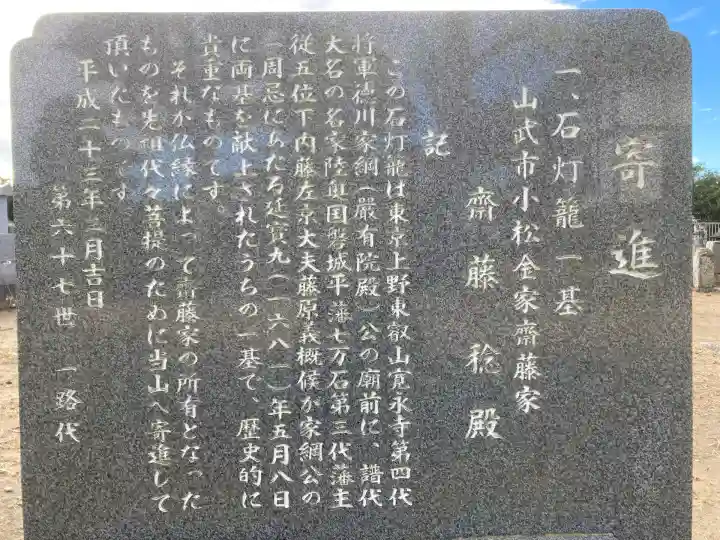 寄進
一、石灯籠一基
山武市小松金家齋藤家
齋藤稔殿
記
この石灯籠は東京上野東叡山寛永寺第四代
将軍徳川家綱(嚴有院殿)公の廟前に、譜代
大名の名家陸奥国磐城平藩七万石第三代藩主
従五位下内藤左京大夫藤原義概候が家綱公の
一周忌にあたる延寳九(一六八一)年五月八日
に両基を献上されたうちの一基で、歴史的に
貴重なものです。
それが仏縁によって齋藤家の所有となった
ものを先祖代々菩提のために当山へ寄進して
頂いたものです
平成二十三年三月吉日
第六十七世 一路代